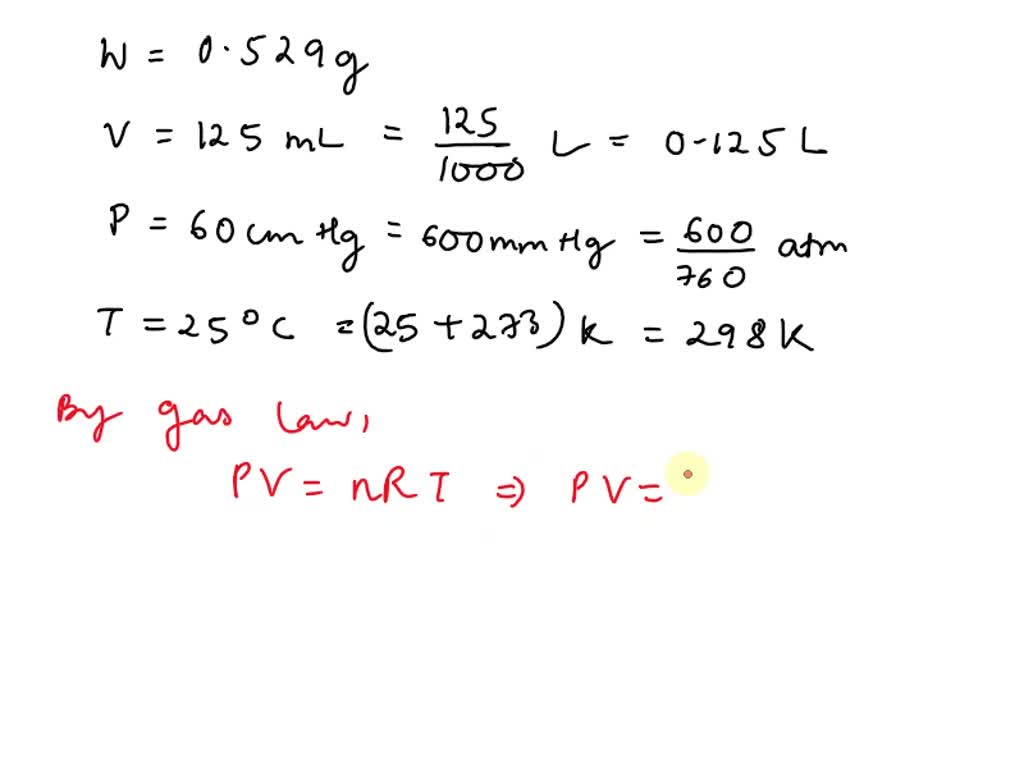 W = 0.529g
V = 125 mL = 125/1000 L = 0.125 L
P = 60 cm Hg = 600 mm Hg = 600/760 atm
T = 25°C = (25 + 273) K = 298 K
By gas law,
PV = nRT ⇒ PV =